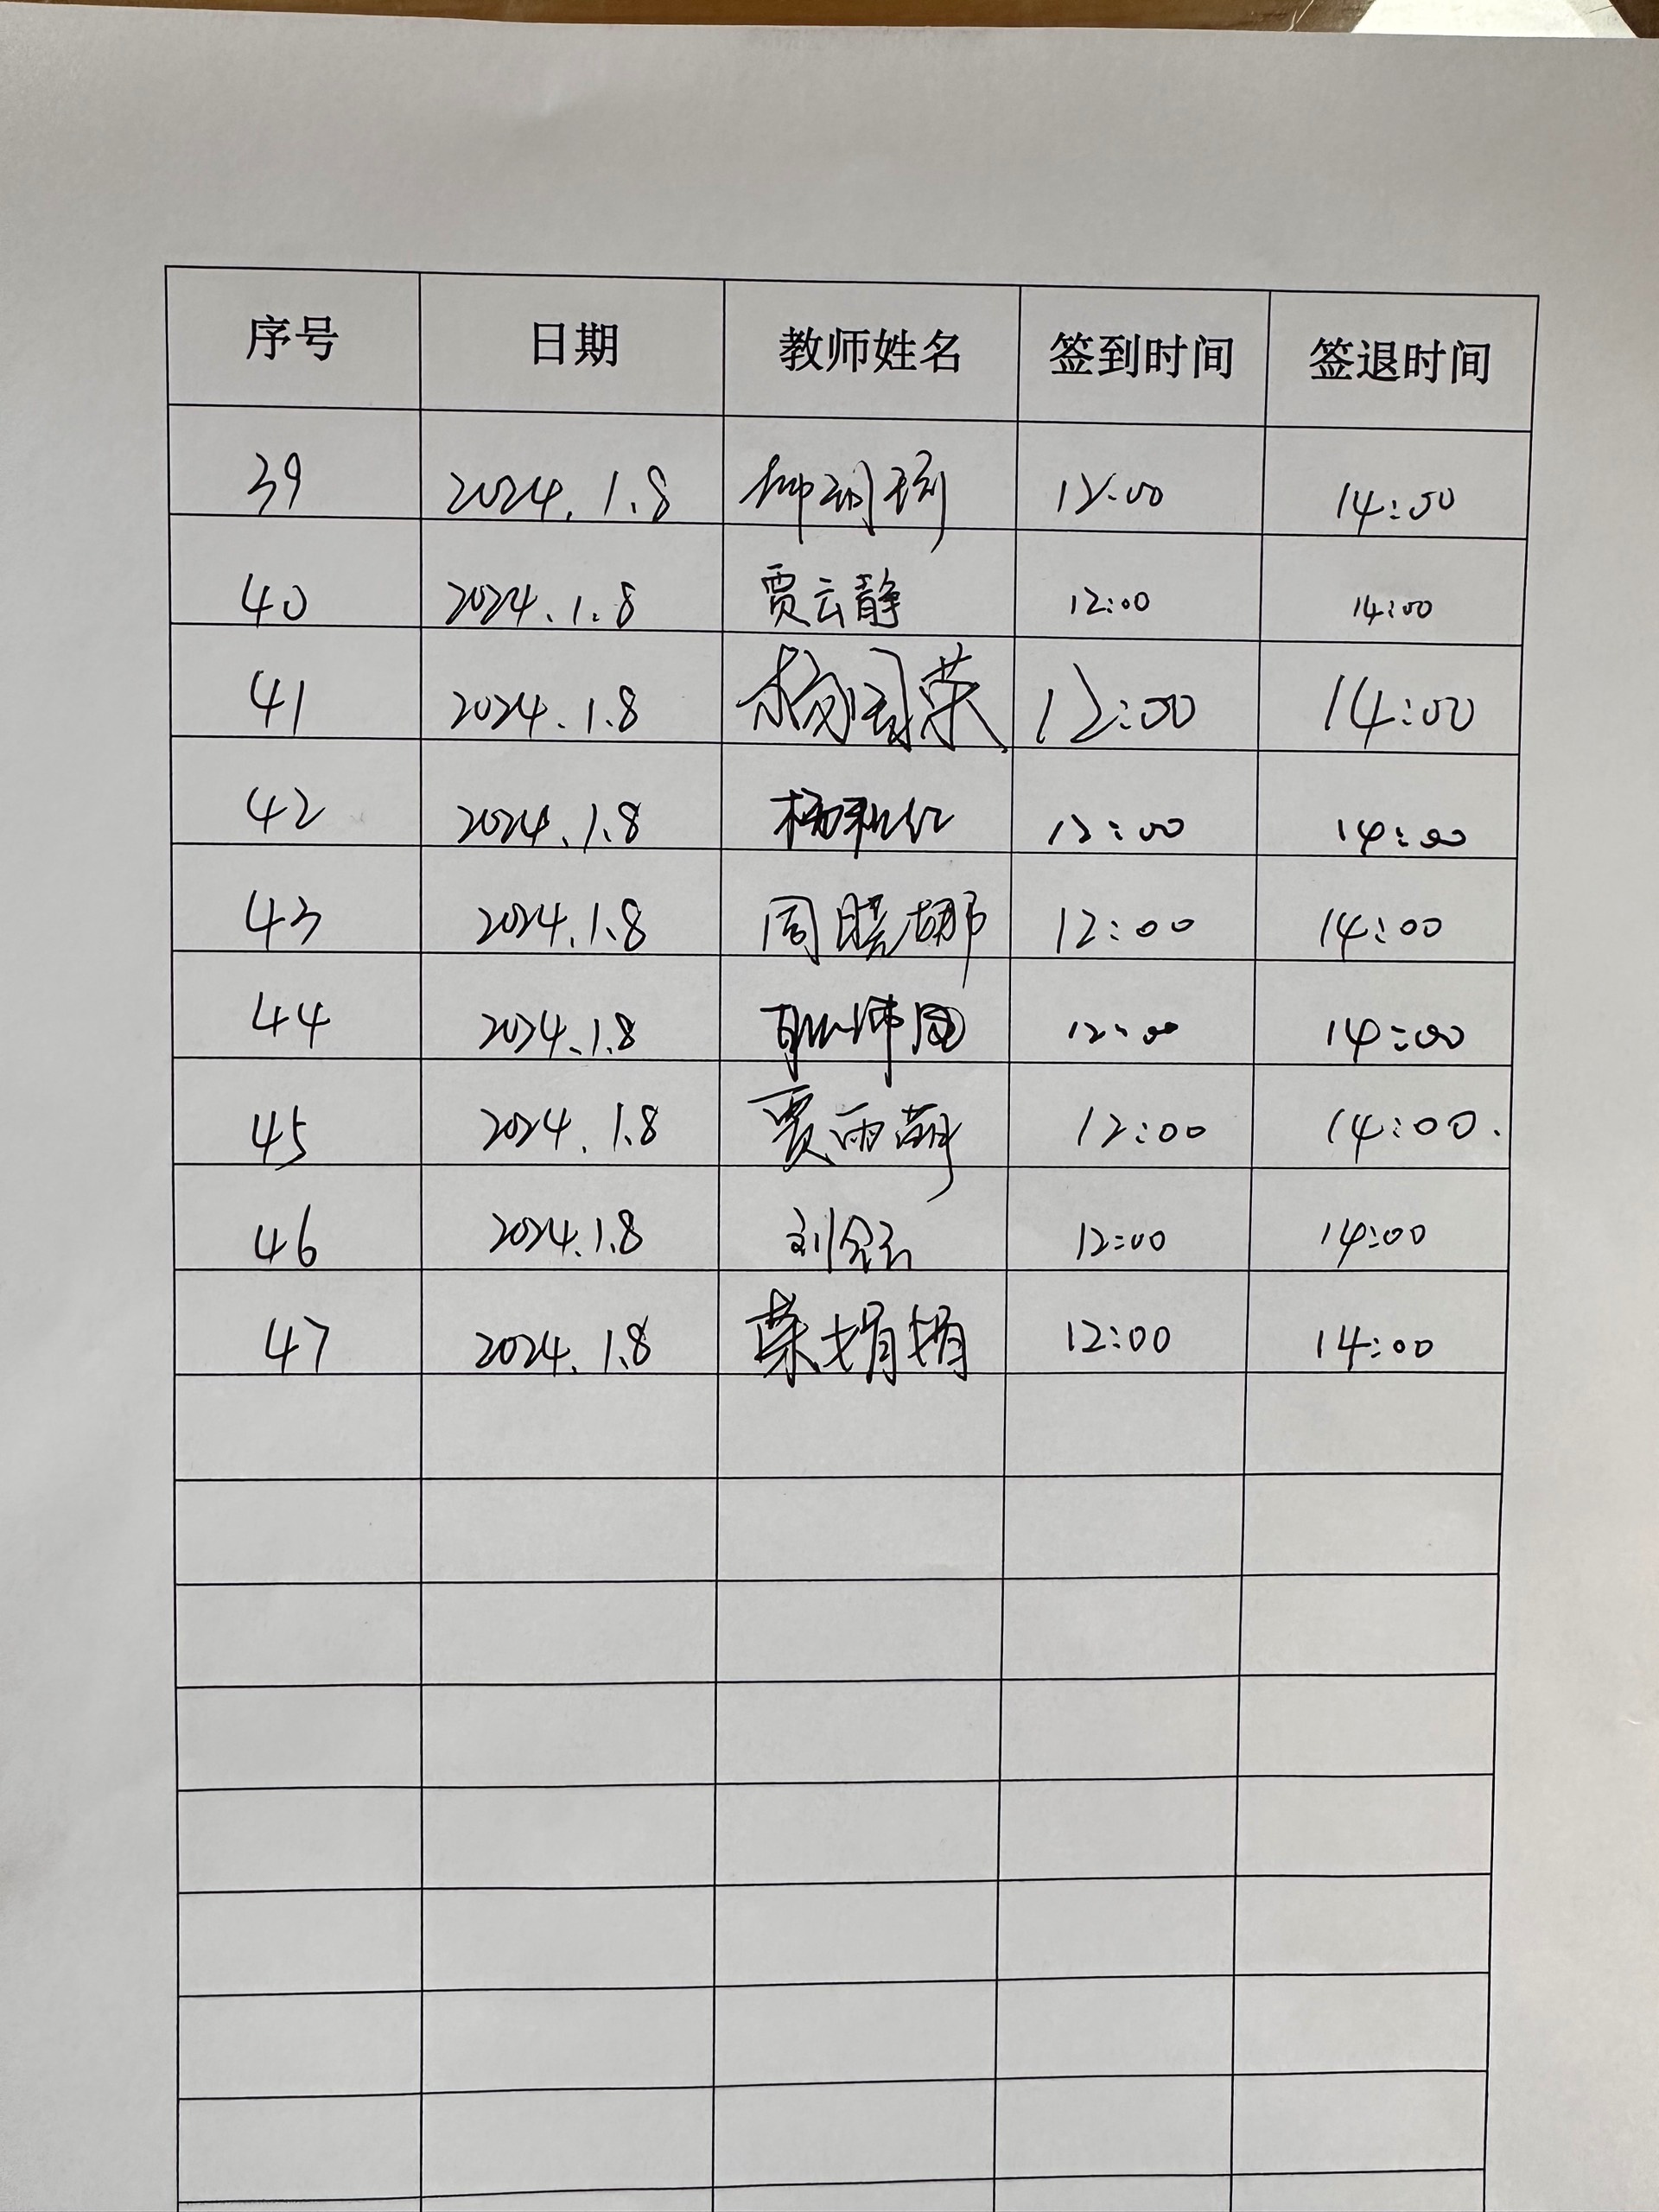 序号 日期 教师姓名 签到时间 签退时间
39 2024.1.8 12:00 14:00
40 2024.1.8 贾云静 12:00 14:00
41 2024.1.8 杨国荣 12:00 14:00
42 2024.1.8 杨红 12:00 14:00
43 2024.1.8 周晓娜 12:00 14:00
44 2024.1.8 12:00 14:00
45 2024.1.8 贾雨萌 12:00 14:00.
46 2024.1.8 刘会 12:00 14:00
47 2024.1.8 荣娟娟 12:00 14:00